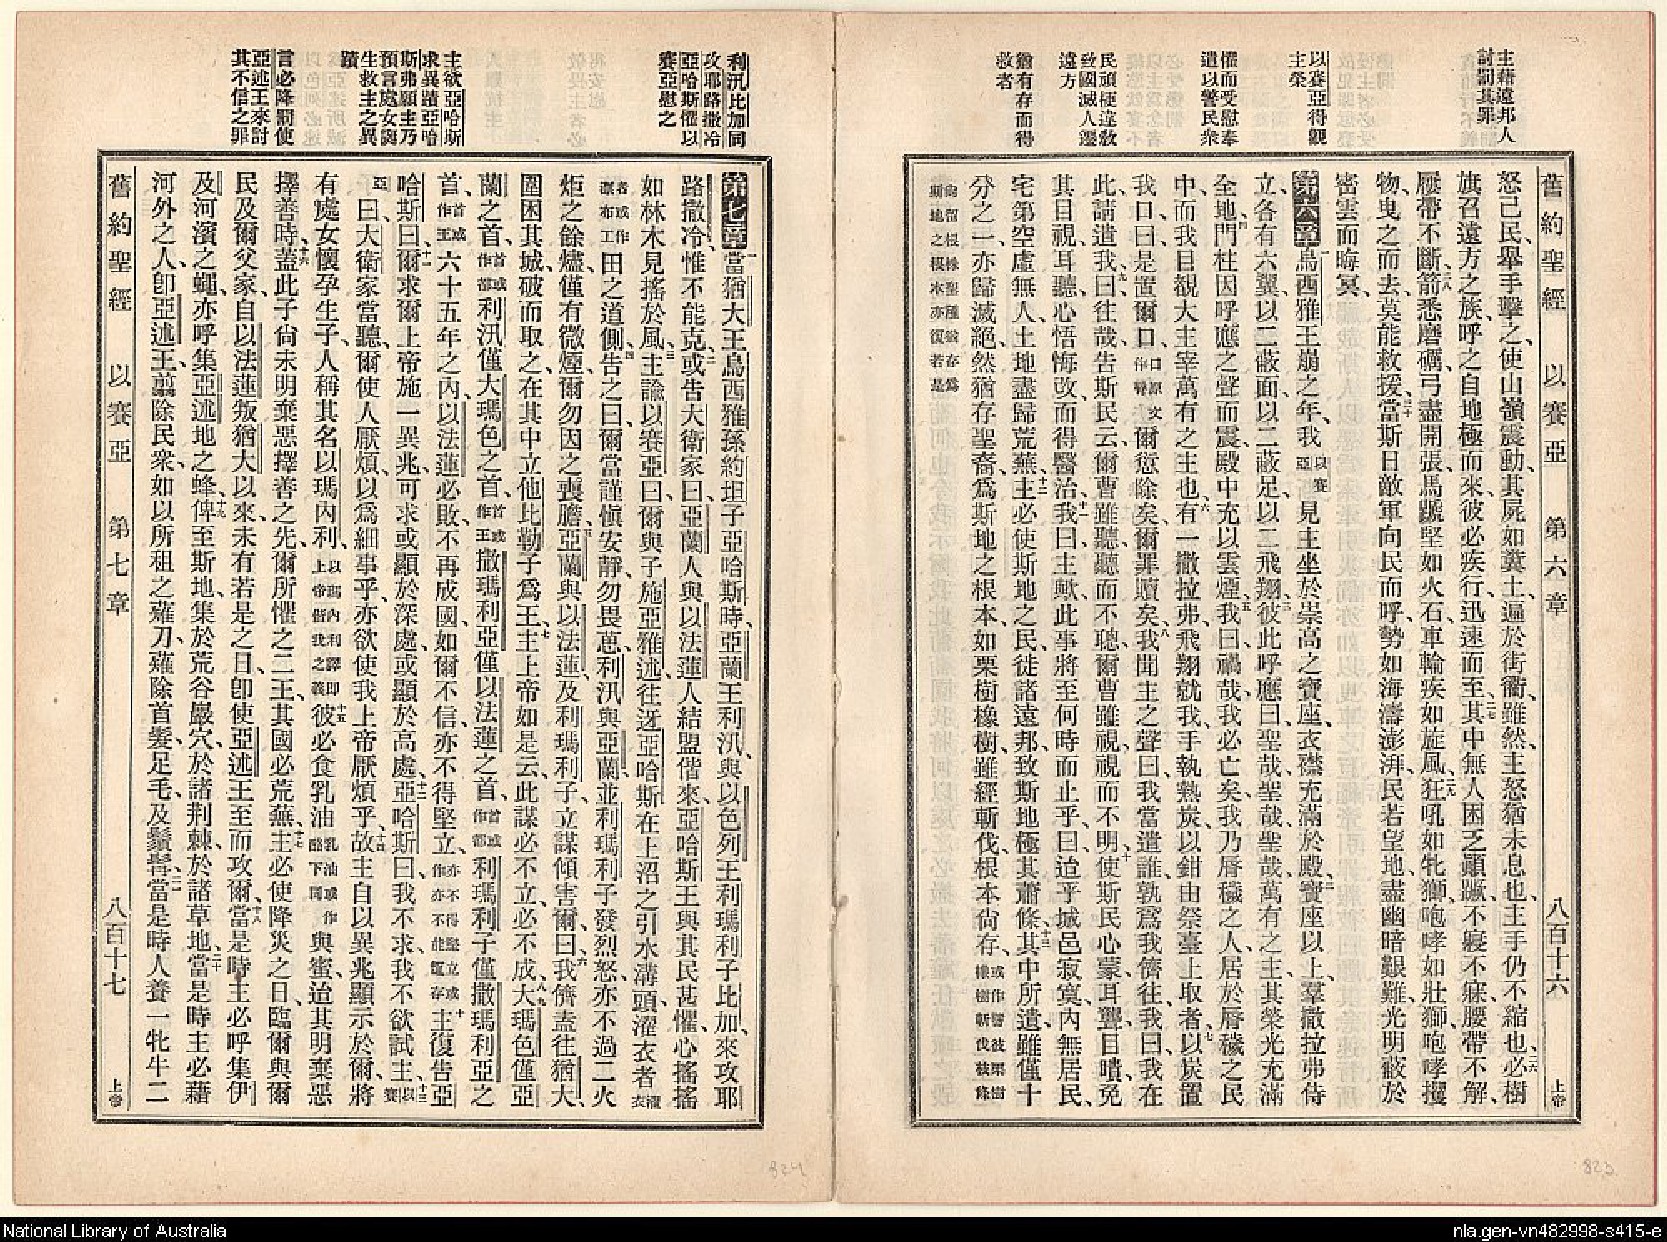 主藉遠邦人
討罰其罪
以賽亞得觀
主榮
懼而受慰奉
遣以警民衆
民頑梗違敎
致國滅人遷
遠方
猶有存而得
救者
舊約聖經 以賽亞 第六章 八百十六 上帝
怒己民、舉手擊之、使山嶺震動、其屍如糞土、遍於街衢、雖然、主怒猶未息也、主手仍不縮也、二六必樹
旗召遠方之族、呼之自地極而來、彼必疾行、迅速而至、二七其中無人困乏顚蹶、不寢不寐、腰帶不解、
履帶不斷、二八箭悉磨礪、弓盡開張、馬蹏堅如火石、車輪疾如旋風、狂吼如牝獅、咆哮如壯獅、咆哮攫
物、曳之而去、莫能救援、三十當斯日敵軍向民而呼、勢如海濤澎湃、民若望地、盡幽暗艱難、光明蔽於
密雲而晦冥、
第六章 一烏西雅王崩之年、我以賽亞斯見主坐於崇高之寶座、衣襟充滿於殿、二寶座以上、羣撒拉弗侍
立、各有六翼、以二蔽面、以二蔽足、以二飛翔、三彼此呼應曰、聖哉聖哉聖哉、萬有之主、其榮光充滿
全地、四門柱因呼應之聲而震、殿中充以雲煙、五我曰、禍哉、我必亡矣、我乃脣穢之人、居於脣穢之民
中、而我目覩大主宰萬有之主也、六有一撒拉弗飛翔就我、手執熱炭、以鉗由祭臺上取者、七以炭置
我口、曰、是置爾口、口原文作脣爾愆除矣、爾罪贖矣、八我聞主之聲曰、我當遣誰、孰爲我儕往、我曰、我在
此、請遣我、九曰、往哉、告斯民云、爾曹雖聽、聽而不聰、爾曹雖視、視而不明、十使斯民心蒙耳聾目瞶、免
其目視耳聽心悟、悔改而得醫治、十一我曰、主歟、此事將至何時而止乎、曰、迨乎城邑寂寞、內無居民、
宅第空虛無人、土地盡歸荒蕪、十二主必使斯地之民、徙諸遠邦、致斯地極其蕭條、十三其中所遺、雖僅十
分之一、亦歸滅絕、然猶存聖裔、爲斯地之根本、如栗樹橡樹、雖經斬伐、根本尙存、
舊約聖經 以賽亞 第七章 八百十七 上帝
利汛比加同
攻耶路撒冷
亞哈斯懼以
賽亞慰之
主欲亞哈斯
求異蹟亞哈
斯弗願主乃
預言處女誕
生救主之異
蹟
言必降罰使
亞述王來討
其不信之罪
第七章 一當猶大王烏西雅孫約坦子亞哈斯時、亞蘭王利汛、與以色列王利瑪利子比加、來攻耶
路撒冷、惟不能克、二或告大衛家曰、亞蘭人與以法蓮人結盟偕來、亞哈斯王與其民甚懼、心搖搖
如林木見搖於風、三主諭以賽亞曰、爾與子施亞雅述、往迓亞哈斯、在上沼之引水溝頭、濯衣者
者或作漂布工田之道側、四告之曰、爾當謹愼安靜、勿畏葸、利汛與亞蘭、並利瑪利子發烈怒、亦不過二火
炬之餘燼、僅有微煙、爾勿因之喪膽、五亞蘭與以法蓮、及利瑪利子、立謀傾害爾、曰、六我儕盍往猶大、
圍困其城、破而取之、在其中立他比勒子爲王、七主上帝如是云、此謀必不立、必不成、八九大瑪色僅亞
蘭之首、首或作都利汛僅大瑪色之首、首或作王撒瑪利亞僅以法蓮之首、首或作都利瑪利子僅撒瑪利亞之
首、首或作王六十五年之內、以法蓮必敗、不再成國、如爾不信、亦不得堅立、亦不得堅立或作亦不能恆存十主復告亞
哈斯曰、十一爾求爾上帝施一異兆、可求或顯於深處、或顯於高處、十二亞哈斯曰、我不求、我不欲試主、十三以賽
亞曰、大衛家當聽、爾使人厭煩、以爲細事乎、亦欲使我上帝厭煩乎、十四故主自以異兆顯示於爾、將
有處女懷孕生子、人稱其名以瑪內利、以瑪內利譯卽上帝偕我之義十五彼必食乳油乳油或作酪下同與蜜、迨其明棄惡
擇善時、十六蓋此子尙未明棄惡擇善之先、爾所懼之二王、其國必荒蕪、十七主必使降災之日、臨爾與爾
民及爾父家、自以法蓮叛猶大以來、未有若是之日、卽使亞述王至而攻爾、十八當是時主必呼集伊
及河濱之蠅、亦呼集亞述地之蜂、十九俾至斯地、集於荒谷巖穴、於諸荆棘、於諸草地、二十當是時主必藉
河外之人、卽亞述王、翦除民衆、如以所租之薙刀、薙除首髮足毛、及鬚髯、二一當是時人養一牝牛二
823
824
National Library of Australia
nla.gen-vn482998-s415-e